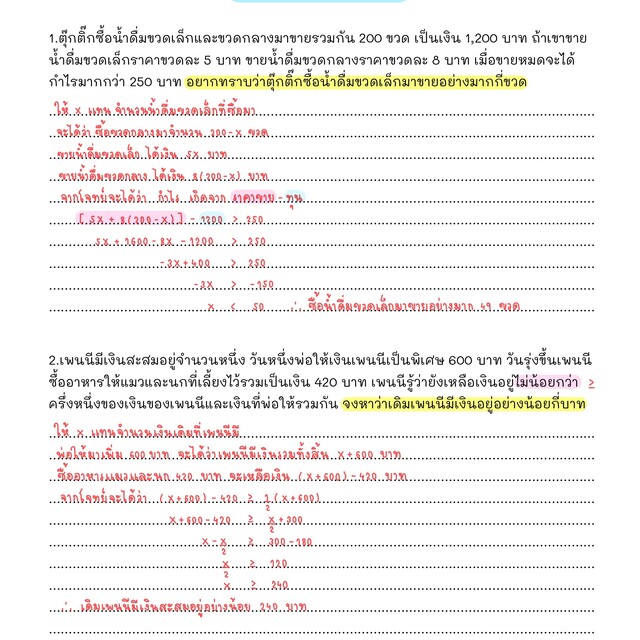 1.ตุ๊กติ๊กซื้อน้ำดื่มขวดเล็กและขวดกลางมาขายรวมกัน 200 ขวด เป็นเงิน 1,200 บาท ถ้าเขาขาย
น้ำดื่มขวดเล็กราคาขวดละ 5 บาท ขายน้ำดื่มขวดกลางราคาขวดละ 8 บาท เมื่อขายหมดจะได้
กำไรมากกว่า 250 บาท อยากทราบว่าตุ๊กติ๊กซื้อน้ำดื่มขวดเล็กมาขายอย่างมากกี่ขวด
ให้ x แทน จำนวนน้ำดื่มขวดเล็กที่ซื้อมา
จะได้ว่า ซื้อขวดกลางมาจำนวน 200-x ขวด
ขายน้ำดื่มขวดเล็ก ได้เงิน 5x บาท
ขายน้ำดื่มขวดกลาง ได้เงิน 8(200-x) บาท
จากโจทย์จะได้ว่า กำไร เกิดจาก ราคาขาย - ทุน
[5x + 8(200-x)] - 1200 > 250
5x + 1600 - 8x - 1200 > 250
-3x + 400 > 250
-3x > -150
x < 50 ∴ ซื้อน้ำดื่มขวดเล็กมาขายอย่างมาก 49 ขวด
2.เพนนีมีเงินสะสมอยู่จำนวนหนึ่ง วันหนึ่งพ่อให้เงินเพนนีเป็นพิเศษ 600 บาท วันรุ่งขึ้นเพนนี
ซื้ออาหารให้แมวและนกที่เลี้ยงไว้รวมเป็นเงิน 420 บาท เพนนีรู้ว่ายังเหลือเงินอยู่ไม่น้อยกว่า ≥
ครึ่งหนึ่งของเงินของเพนนีและเงินที่พ่อให้รวมกัน จงหาว่าเดิมเพนนีมีเงินอยู่อย่างน้อยกี่บาท
ให้ x แทนจำนวนเงินเดิมที่เพนนีมี
พ่อให้มาเพิ่ม 600 บาท จะได้ว่าเพนนีมีเงินรวมทั้งสิ้น x + 600 บาท
ซื้ออาหารแมวและนก 420 บาท จะเหลือเงิน (x + 600) - 420 บาท
จากโจทย์จะได้ว่า (x + 600) - 420 ≥ 1/2 (x + 600)
x + 600 - 420 ≥ x/2 + 300
x - x/2 ≥ 300 - 180
x/2 ≥ 120
x ≥ 240
∴ เดิมเพนนีมีเงินสะสมอยู่อย่างน้อย 240 บาท